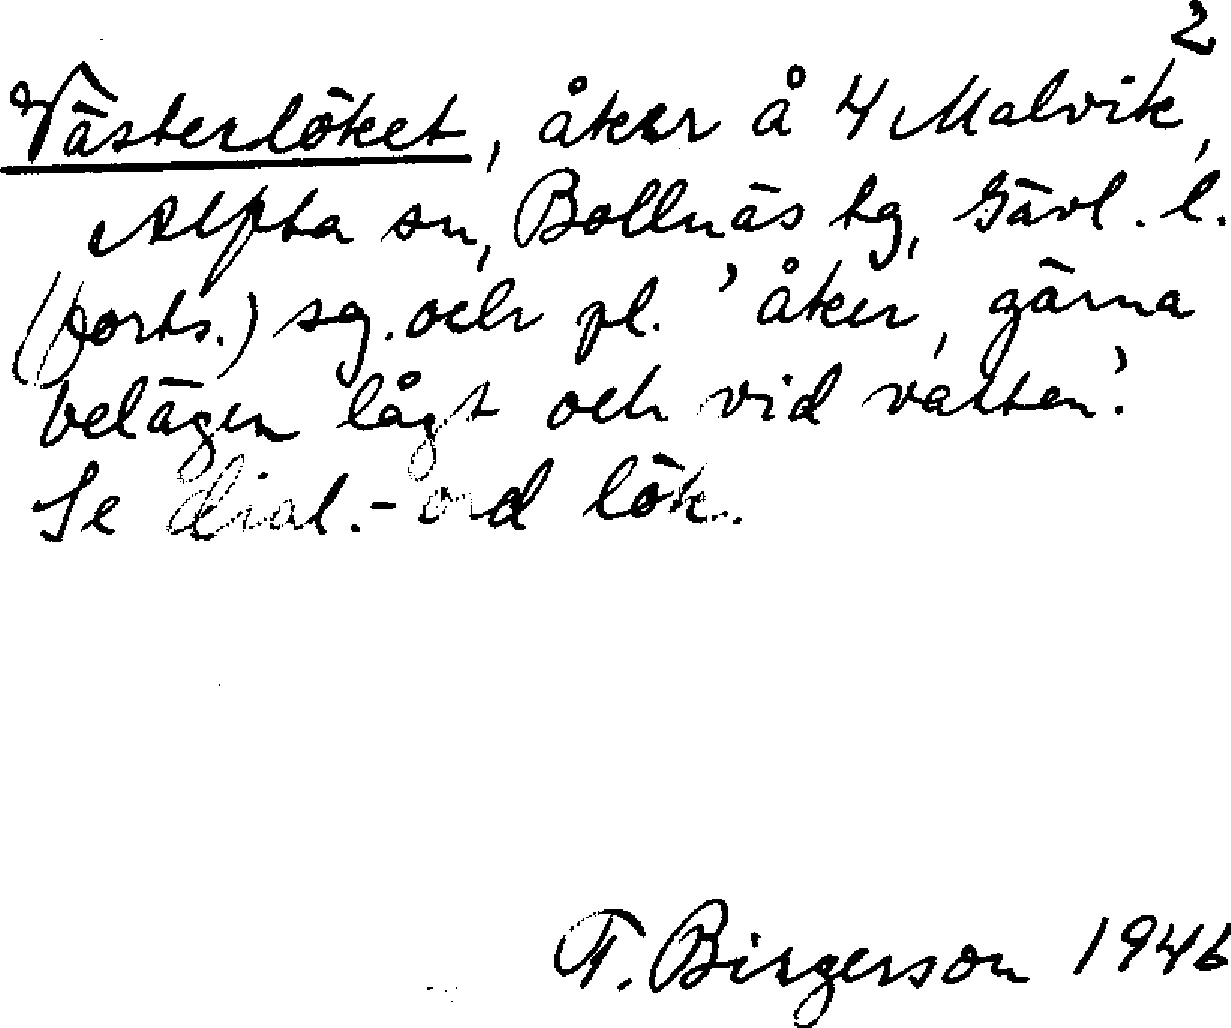 2
Västerlöket, åker å 4 Malvik,
Alfta sn, Bollnäs tg, Gävl. l.
(forts.) sg. och pl. 'åker, gärna
belägen lågt och vid vatten'.
Se dial.-ord lök.
T. Birgerson 1946